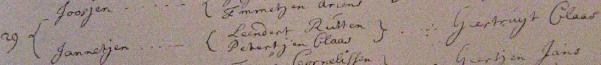 Joosjen { Emmetjen Ariens
29 { Jannetjen { Leendert Rutten } Geertruyt Claas
Petertjen Claas
Cornelissen } Geertjen Jans